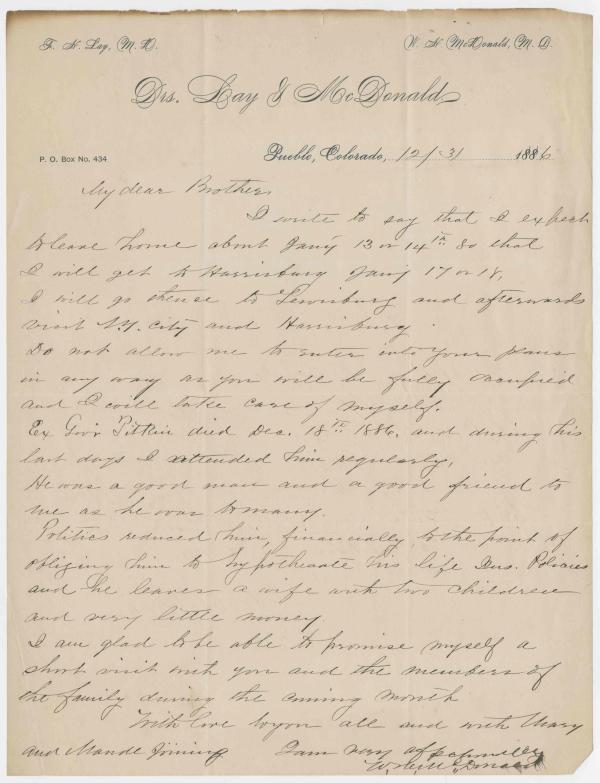 T. H. Lay, M. D.
W. H. McDonald, M. D.
Drs. Lay & McDonald
P. O. Box No. 434
Pueblo, Colorado, 12/31 1886
My dear Brother
I write to say that I expect
to leave home about Jany 13 or 14th so that
I will get to Harrisburg Jany 17 or 18,
I will go thense to Lewisburg and afterwards
visit N.Y. city and Harrisburg.
Do not allow me to enter into your plans
in any way as you will be fully occupied
and I will take care of myself.
Ex Gov'r Pitkin died Dec. 18th 1886, and during his
last days I attended him regularly,
He was a good man and a good friend to
me as he was to many.
Politics reduced him, financially, to the point of
obliging him to hypothecate his life Ins. Policies
and he leaves a wife with two children
and very little money.
I am glad to be able to promise myself a
short visit with you and the members of
the family during the coming month
With love to you all and with Mary
and Maude joining I am very affectionately
W. H. McDonald